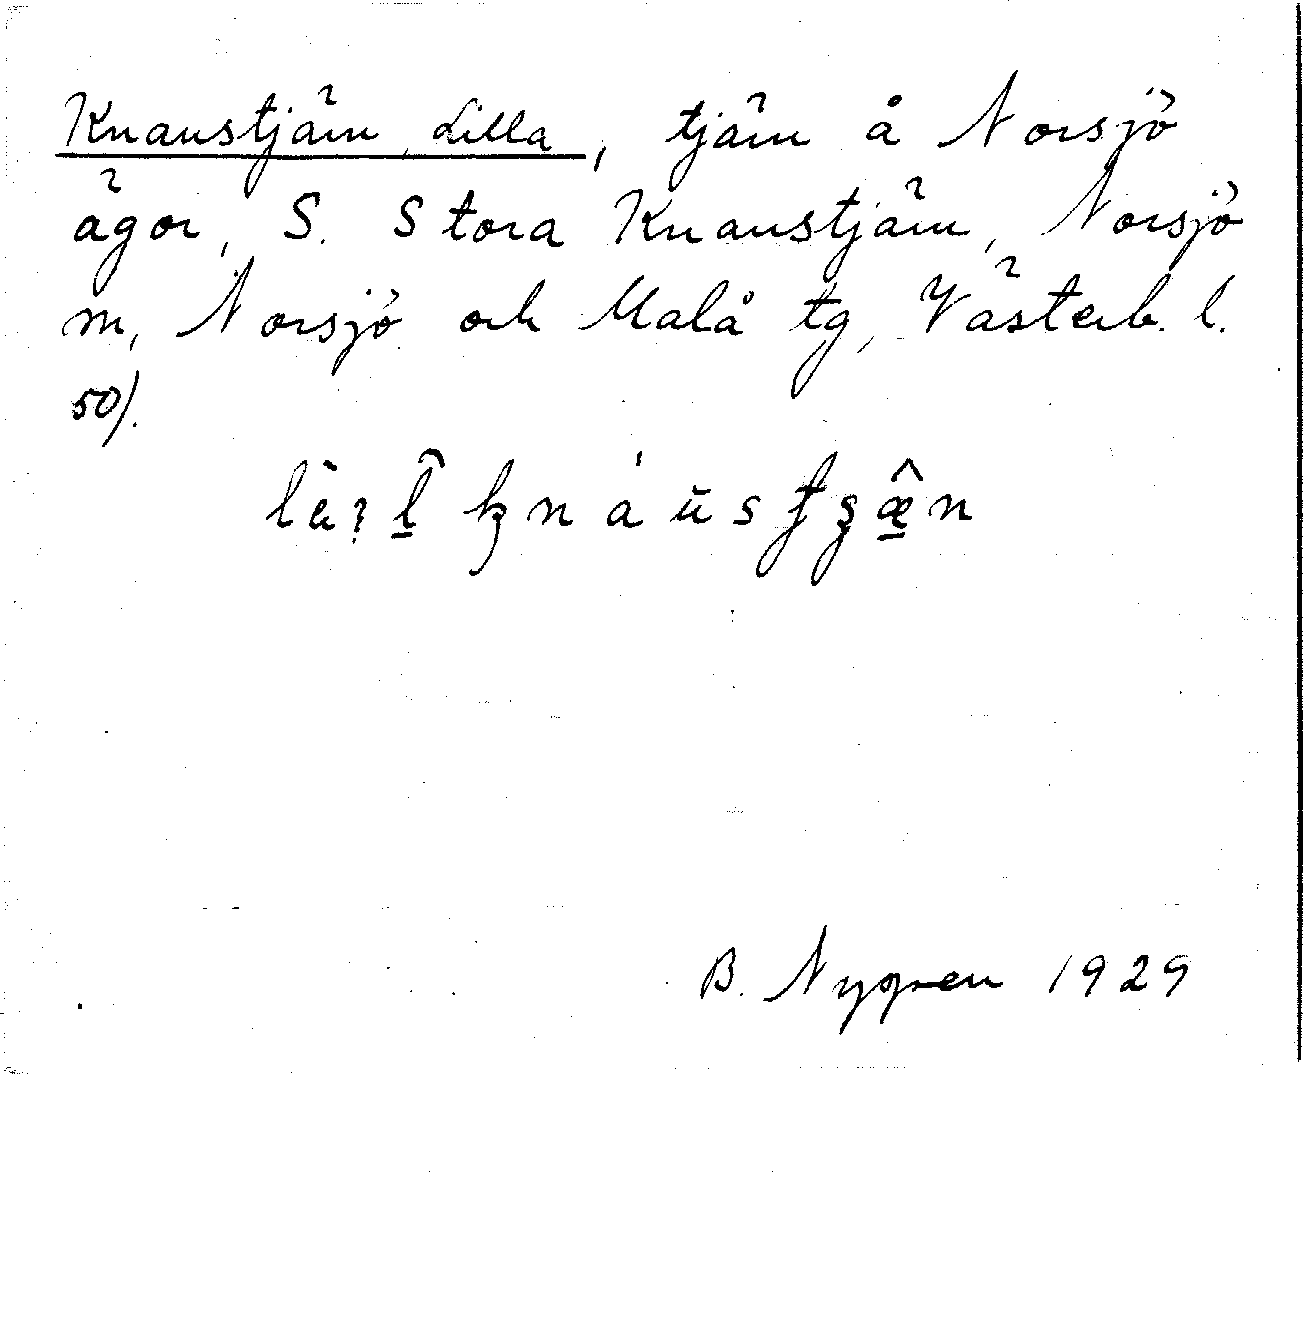 Knaustjärn, Lilla, tjärn å Norsjö
ägor, S. Stora Knaustjärn, Norsjö
sn, Norsjö och Malå tg, Västerb. l.
50).
B. Nygren 1929